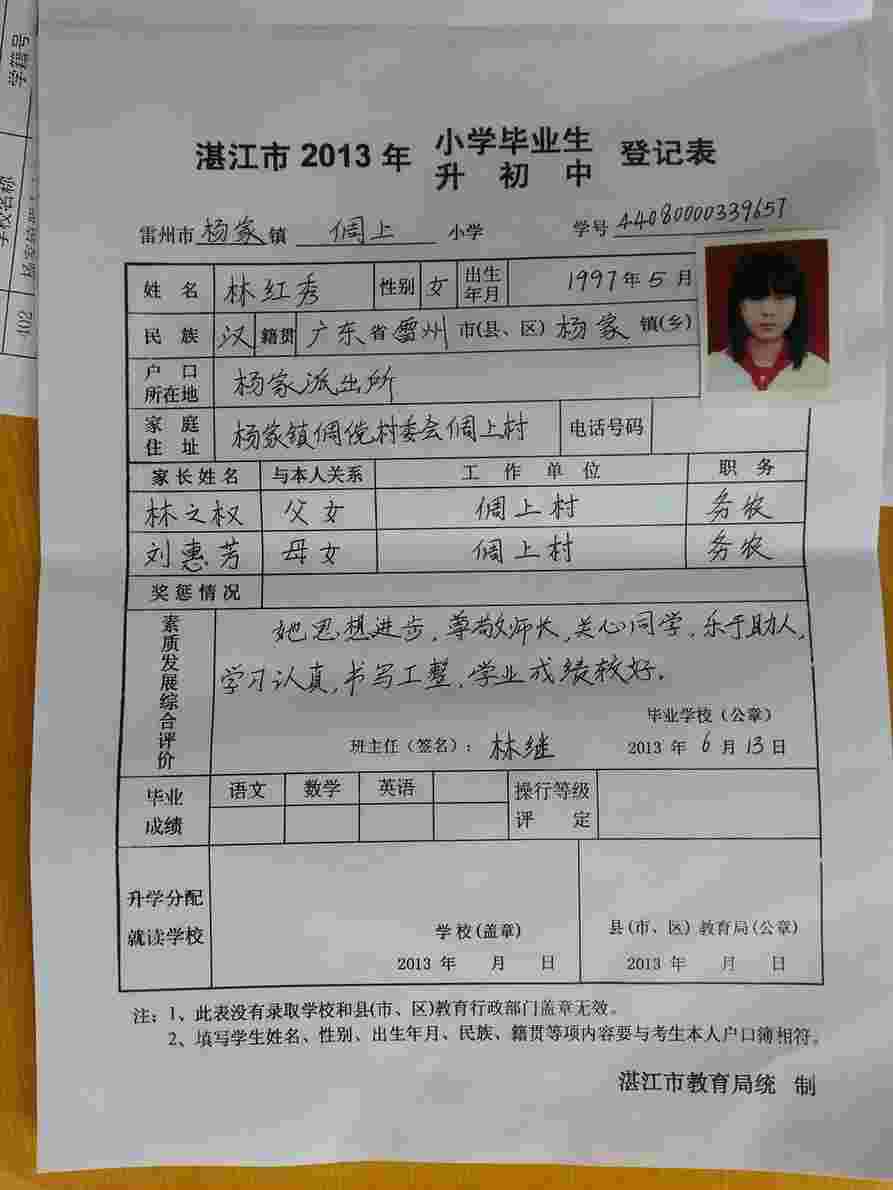 湛江市 2013 年 小学毕业生 升初中 登记表
雷州市 杨家 镇 倜上 小学 学号 44080000339657
姓名 林红秀 性别 女 出生年月 1997年5月
民族 汉 籍贯 广东省雷州市(县、区)杨家镇(乡)
户口所在地 杨家派出所
家庭住址 杨家镇倜傥村委会倜上村 电话号码
家长姓名 与本人关系 工作单位 职务
林之权 父女 倜上村 务农
刘惠芳 母女 倜上村 务农
奖惩情况
素质发展综合评价
她思想进步,尊敬师长,关心同学,乐于助人,
学习认真,书写工整,学业成绩较好.
毕业学校(公章)
班主任(签名): 林继 2013 年 6 月 13 日
毕业成绩 语文 数学 英语 操行等级评定
升学分配就读学校
学校(盖章) 县(市、区)教育局(公章)
2013 年 月 日 2013 年 月 日
注:1、此表没有录取学校和县(市、区)教育行政部门盖章无效。
2、填写学生姓名、性别、出生年月、民族、籍贯等项内容要与考生本人户口簿相符。
湛江市教育局统 制
学籍号
402